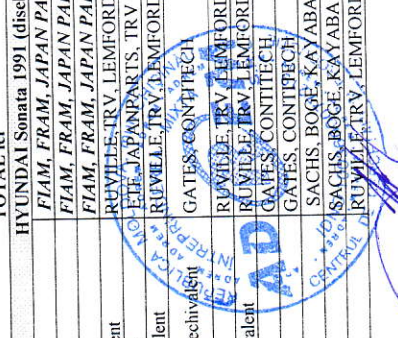 TOTAL lei
HYUNDAI Sonata 1991 (disel
FIAM, FRAM, JAPAN PA
FIAM, FRAM, JAPAN PA
FIAM, FRAM, JAPAN PA
ent RUVILLE, TRV, LEMFORD
ETF, JAPANPARTS, TRV
lent RUVILLE, TRV, LEMFORD
echivalent GATES, CONTITECH
RUVILLE, TRV, LEMFORD
alent RUVILLE, TRV, LEMFORD
GATES, CONTITECH
GATES, CONTITECH
SACHS, BOGE, KAYABA
SACHS, BOGE, KAYABA
RUVILLE, TRV, LEMFORD
REPUBLICA MOLDOVA
INTREPRINDEREA MIXTA
AD
ADREM
IDNO
CENTRUL DE